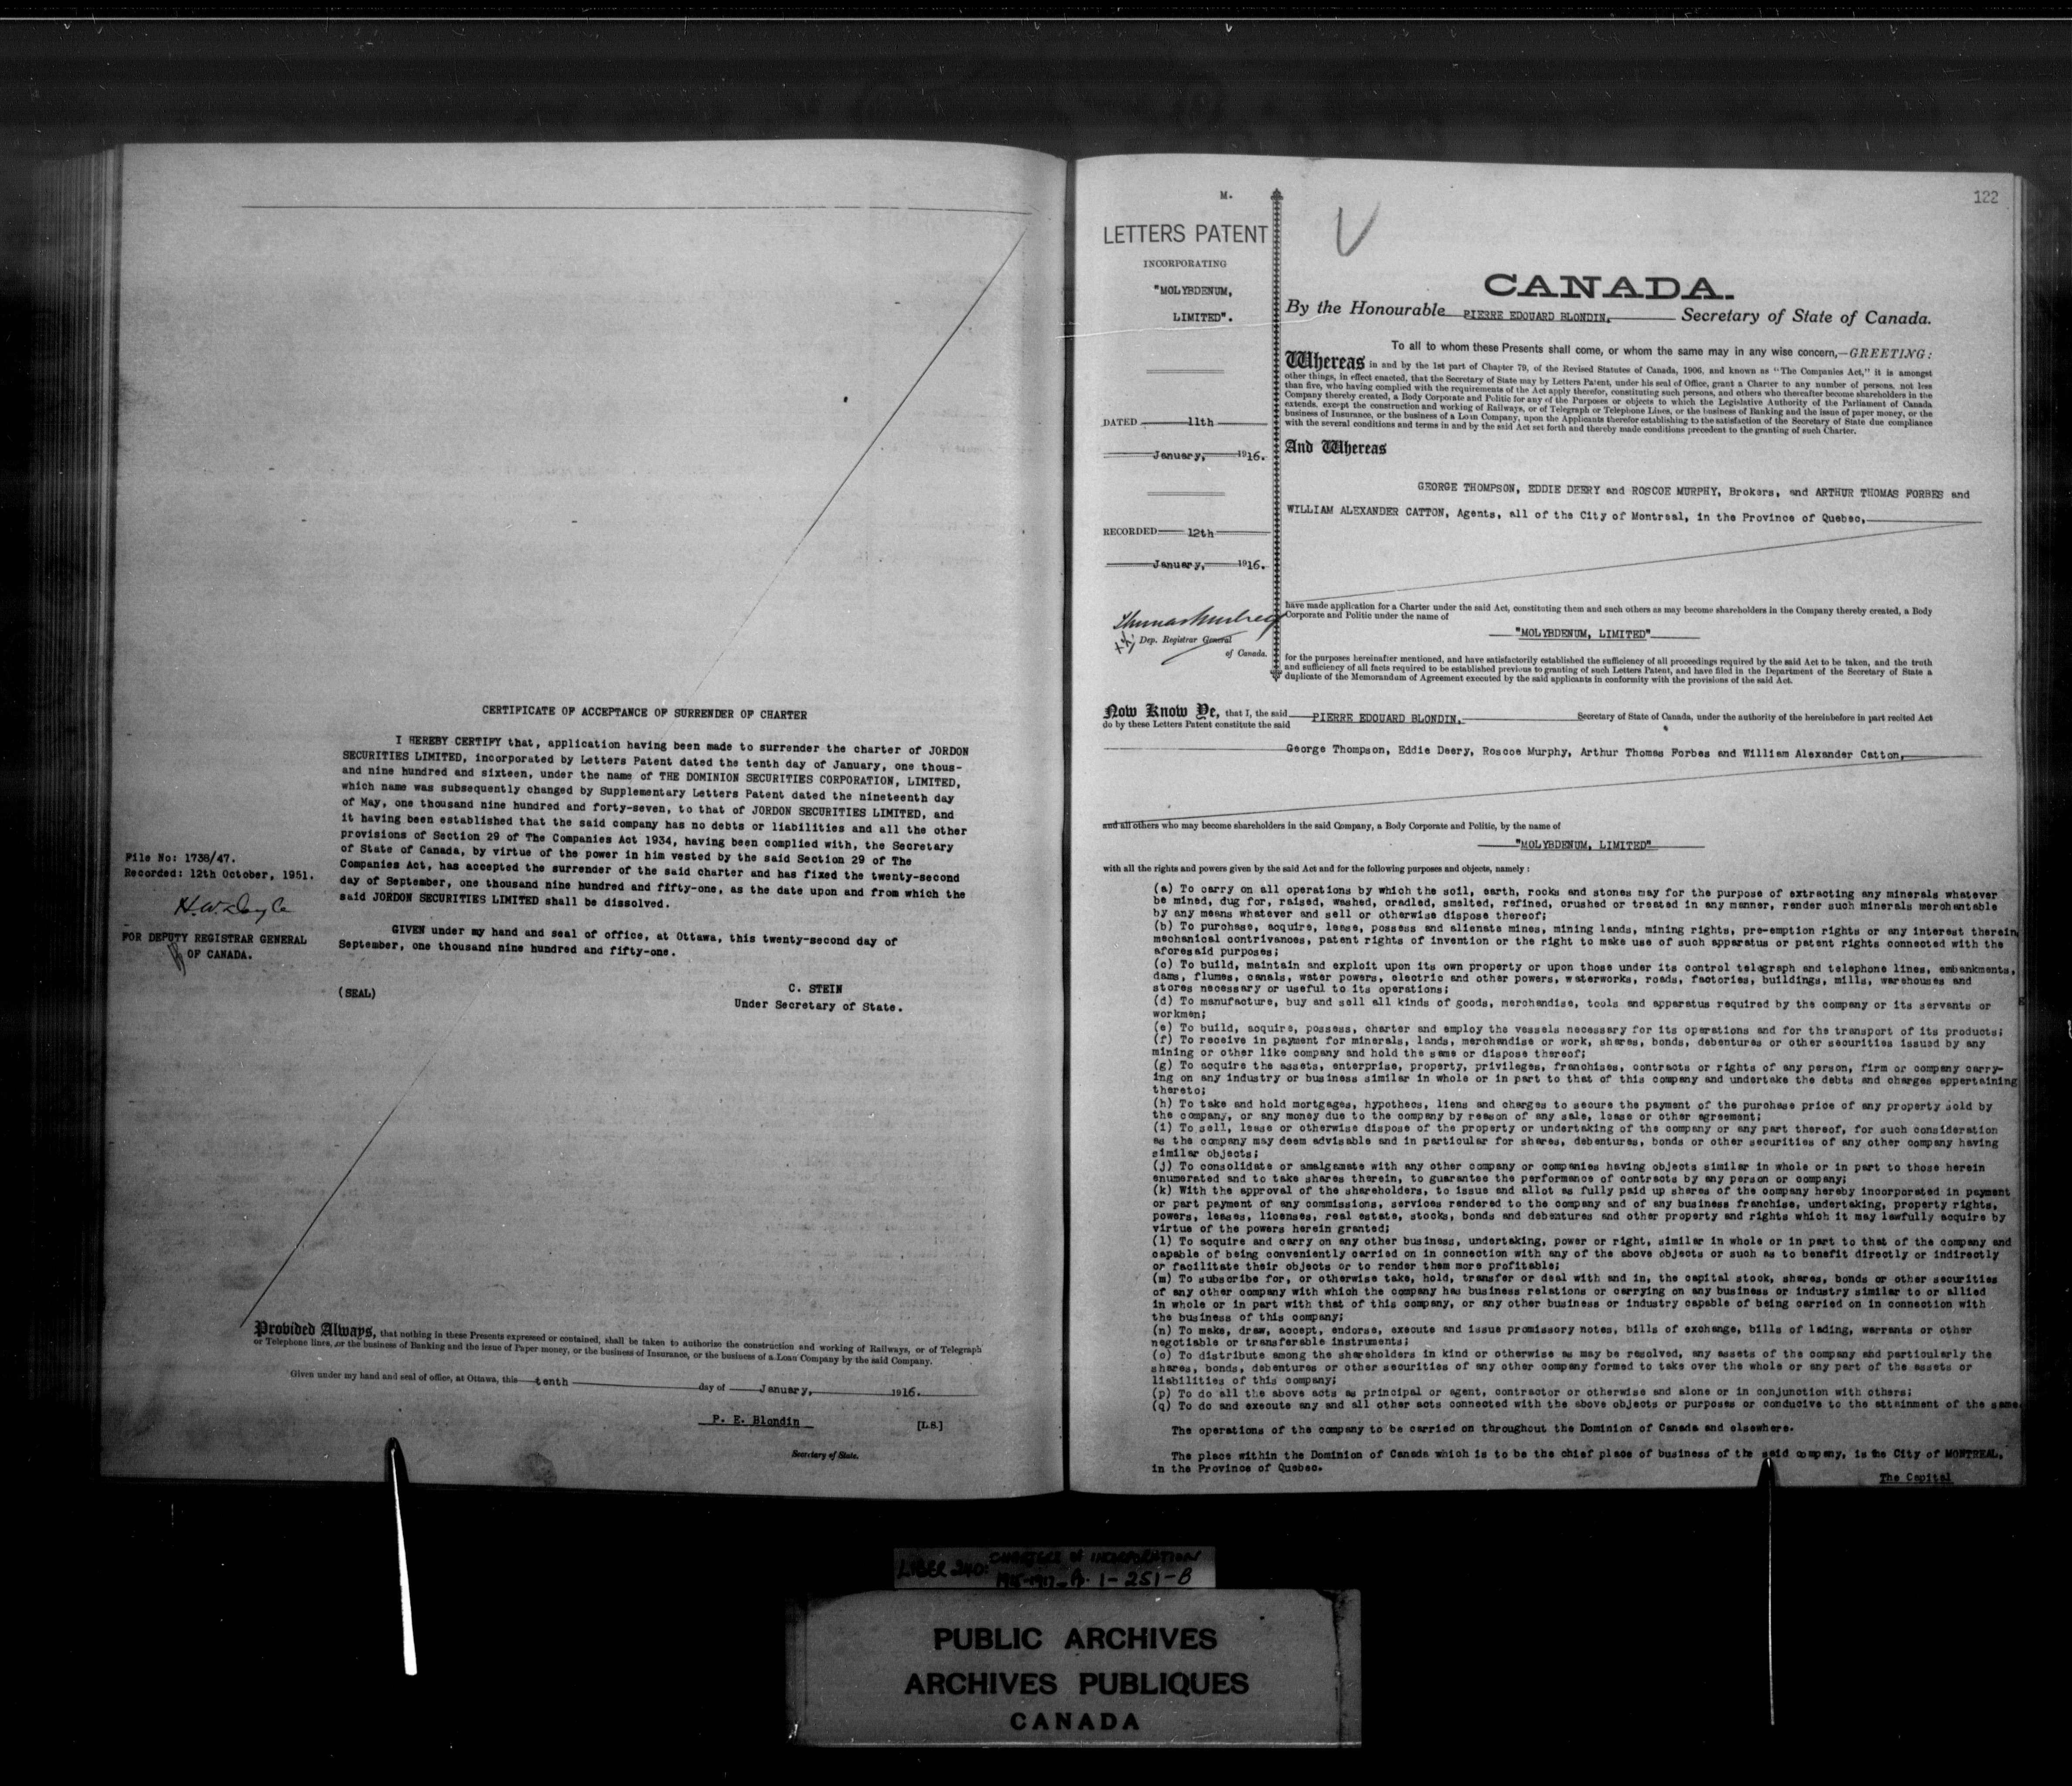 CERTIFICATE OF ACCEPTANCE OF SURRENDER OF CHARTER
I HEREBY CERTIFY that, application having been made to surrender the charter of JORDON
SECURITIES LIMITED, incorporated by Letters Patent dated the tenth day of January, one thous-
and nine hundred and sixteen, under the name of THE DOMINION SECURITIES CORPORATION, LIMITED,
which name was subsequently changed by Supplementary Letters Patent dated the nineteenth day
of May, one thousand nine hundred and forty-seven, to that of JORDON SECURITIES LIMITED, and
it having been established that the said company has no debts or liabilities and all the other
provisions of Section 29 of The Companies Act 1934, having been complied with, the Secretary
of State of Canada, by virtue of the power in him vested by the said Section 29 of The
Companies Act, has accepted the surrender of the said charter and has fixed the twenty-second
day of September, one thousand nine hundred and fifty-one, as the date upon and from which the
said JORDON SECURITIES LIMITED shall be dissolved.
File No: 1738/47.
Recorded: 12th October, 1951.
H.W. Doyle
FOR DEPUTY REGISTRAR GENERAL
OF CANADA.
GIVEN under my hand and seal of office, at Ottawa, this twenty-second day of
September, one thousand nine hundred and fifty-one.
(SEAL)
C. STEIN
Under Secretary of State.
Provided Always, that nothing in these Presents expressed or contained, shall be taken to authorise the construction and working of Railways, or of Telegraph
or Telephone lines, or the business of Banking and the issue of Paper money, or the business of Insurance, or the business of a Loan Company by the said Company.
Given under my hand and seal of office, at Ottawa, this tenth day of January, 1916.
P. E. Blondin [L.S.]
Secretary of State.
122
M.
LETTERS PATENT
INCORPORATING
"MOLYBDENUM,
LIMITED".
DATED 11th
January, 1916.
RECORDED 12th
January, 1916.
Dep. Registrar General
of Canada.
CANADA.
By the Honourable PIERRE EDOUARD BLONDIN, Secretary of State of Canada.
To all to whom these Presents shall come, or whom the same may in any wise concern,—GREETING:
Whereas in and by the 1st part of Chapter 79, of the Revised Statutes of Canada, 1906, and known as "The Companies Act," it is amongst
other things, in effect enacted, that the Secretary of State may by Letters Patent, under his seal of Office, grant a Charter to any number of persons, not less
than five, who having complied with the requirements of the Act apply therefor, constituting such persons, and others who thereafter become shareholders in the
Company thereby created, a Body Corporate and Politic for any of the Purposes or objects to which the Legislative Authority of the Parliament of Canada
extends, except the construction and working of Railways, or of Telegraph or Telephone Lines, or the business of Banking and the issue of paper money, or the
business of Insurance, or the business of a Loan Company, upon the Applicants therefor establishing to the satisfaction of the Secretary of State due compliance
with the several conditions and terms in and by the said Act set forth and thereby made conditions precedent to the granting of such Charter.
And Whereas
GEORGE THOMPSON, EDDIE DEERY and ROSCOE MURPHY, Brokers, and ARTHUR THOMAS FORBES and
WILLIAM ALEXANDER CATTON, Agents, all of the City of Montreal, in the Province of Quebec,
have made application for a Charter under the said Act, constituting them and such others as may become shareholders in the Company thereby created, a Body
Corporate and Politic under the name of
"MOLYBDENUM, LIMITED"
for the purposes hereinafter mentioned, and have satisfactorily established the sufficiency of all proceedings required by the said Act to be taken, and the truth
and sufficiency of all facts required to be established previous to granting of such Letters Patent, and have filed in the Department of the Secretary of State a
duplicate of the Memorandum of Agreement executed by the said applicants in conformity with the provisions of the said Act.
Now Know Ye, that I, the said PIERRE EDOUARD BLONDIN, Secretary of State of Canada, under the authority of the hereinbefore in part recited Act
do by these Letters Patent constitute the said
George Thompson, Eddie Deery, Roscoe Murphy, Arthur Thomas Forbes and William Alexander Catton,
and all others who may become shareholders in the said Company, a Body Corporate and Politic, by the name of
"MOLYBDENUM, LIMITED"
with all the rights and powers given by the said Act and for the following purposes and objects, namely :
(a) To carry on all operations by which the soil, earth, rocks and stones may for the purpose of extracting any minerals whatever
be mined, dug for, raised, washed, cradled, smelted, refined, crushed or treated in any manner, render such minerals merchantable
by any means whatever and sell or otherwise dispose thereof;
(b) To purchase, acquire, lease, possess and alienate mines, mining lands, mining rights, pre-emption rights or any interest therein,
mechanical contrivances, patent rights of invention or the right to make use of such apparatus or patent rights connected with the
aforesaid purposes;
(c) To build, maintain and exploit upon its own property or upon those under its control telegraph and telephone lines, embankments,
dams, flumes, canals, water powers, electric and other powers, waterworks, roads, factories, buildings, mills, warehouses and
stores necessary or useful to its operations;
(d) To manufacture, buy and sell all kinds of goods, merchandise, tools and apparatus required by the company or its servants or
workmen;
(e) To build, acquire, possess, charter and employ the vessels necessary for its operations and for the transport of its products;
(f) To receive in payment for minerals, lands, merchandise or work, shares, bonds, debentures or other securities issued by any
mining or other like company and hold the same or dispose thereof;
(g) To acquire the assets, enterprise, property, privileges, franchises, contracts or rights of any person, firm or company carry-
ing on any industry or business similar in whole or in part to that of this company and undertake the debts and charges appertaining
thereto;
(h) To take and hold mortgages, hypothecs, liens and charges to secure the payment of the purchase price of any property sold by
the company, or any money due to the company by reason of any sale, lease or other agreement;
(i) To sell, lease or otherwise dispose of the property or undertaking of the company or any part thereof, for such consideration
as the company may deem advisable and in particular for shares, debentures, bonds or other securities of any other company having
similar objects;
(j) To consolidate or amalgamate with any other company or companies having objects similar in whole or in part to those herein
enumerated and to take shares therein, to guarantee the performance of contracts by any person or company;
(k) With the approval of the shareholders, to issue and allot as fully paid up shares of the company hereby incorporated in payment
or part payment of any commissions, services rendered to the company and of any business franchise, undertaking, property rights,
powers, leases, licenses, real estate, stocks, bonds and debentures and other property and rights which it may lawfully acquire by
virtue of the powers herein granted;
(l) To acquire and carry on any other business, undertaking, power or right, similar in whole or in part to that of the company and
capable of being conveniently carried on in connection with any of the above objects or such as to benefit directly or indirectly
or facilitate their objects or to render them more profitable;
(m) To subscribe for, or otherwise take, hold, transfer or deal with and in, the capital stock, shares, bonds or other securities
of any other company with which the company has business relations or carrying on any business or industry similar to or allied
in whole or in part with that of this company, or any other business or industry capable of being carried on in connection with
the business of this company;
(n) To make, draw, accept, endorse, execute and issue promissory notes, bills of exchange, bills of lading, warrants or other
negotiable or transferable instruments;
(o) To distribute among the shareholders in kind or otherwise as may be resolved, any assets of the company and particularly the
shares, bonds, debentures or other securities of any other company formed to take over the whole or any part of the assets or
liabilities of this company;
(p) To do all the above acts as principal or agent, contractor or otherwise and alone or in conjunction with others;
(q) To do and execute any and all other acts connected with the above objects or purposes or conducive to the attainment of the same.
The operations of the company to be carried on throughout the Dominion of Canada and elsewhere.
The place within the Dominion of Canada which is to be the chief place of business of the said company, is the City of MONTREAL,
in the Province of Quebec.
The Capital
LIBER 240: CHARTERS OF INCORPORATION
1915-1917 1-251-B
PUBLIC ARCHIVES
ARCHIVES PUBLIQUES
CANADA